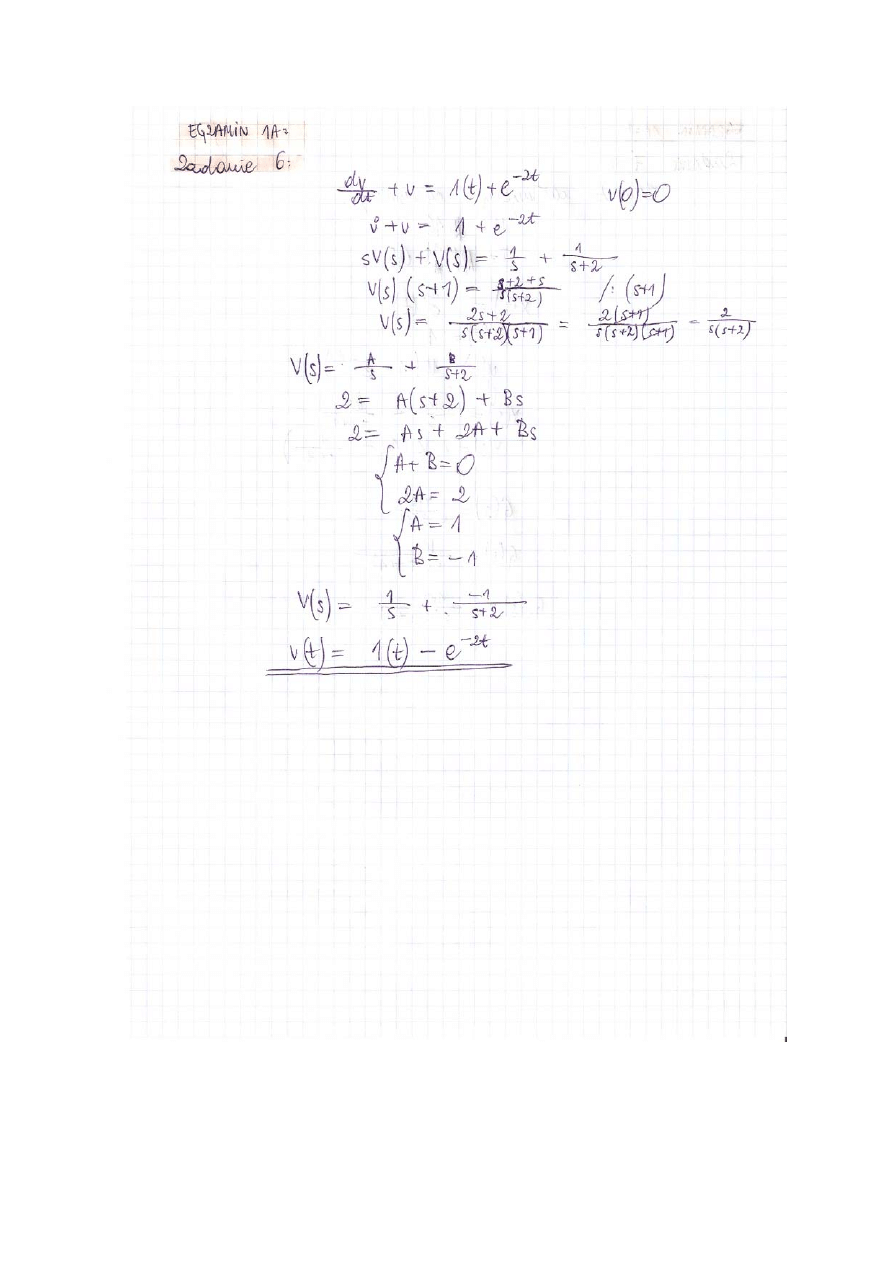 EGZAMIN 1A:
Zadanie 6:
dv/dt + v = 1(t) + e^-2t v(0)=0
v̇ + v = 1 + e^-2t
sV(s) + V(s) = 1/s + 1/(s+2)
V(s) (s+1) = (s+2+s)/(s(s+2)) /: (s+1)
V(s) = (2s+2)/(s(s+2)(s+1)) = 2(s+1)/(s(s+2)(s+1)) = 2/(s(s+2))
V(s) = A/s + B/(s+2)
2 = A(s+2) + Bs
2 = As + 2A + Bs
{ A + B = 0
2A = 2
{ A = 1
B = -1
V(s) = 1/s + -1/(s+2)
v(t) = 1(t) - e^-2t